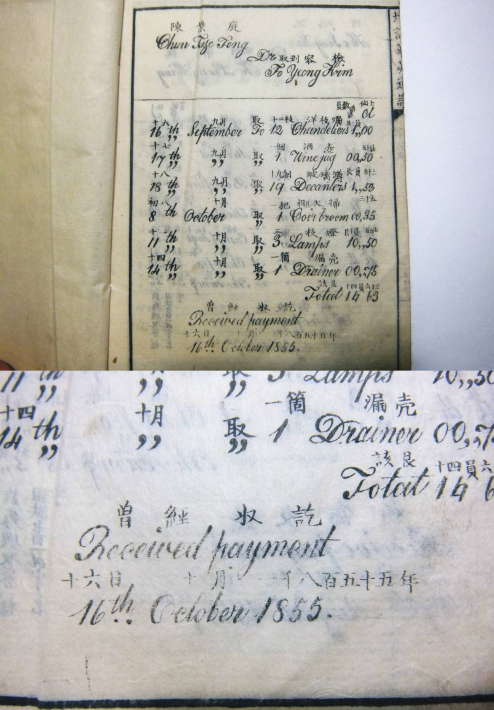 陳 業 庭
Chun Tysc Tong
Dr. 取到容檢
To Yeong Him
十九 九月 取 十二枝
16th September To 12 Chandeliers 1,,00
十七 九月 取 一個 酒壺
17th ,, ,, 1 Wine jug 00,,50
十八 九月 取
18th ,, ,, 19 Decanters 1,,50
初八 十月 取 一把
8th October ,, 1 Coir broom 00,,35
十一 十月 取 三 枝燈
11th ,, ,, 3 Lamps 10,,50
十四 十月 取 一箇 漏壳
14th ,, ,, 1 Drainer 00,,78
該艮 十四員
Total 14
曾 經 收 訖
Received payment
十六日 十月 一千八百五十五年
16th October 1855.
11th ,, ,, 3 Lamps 10,,50
十四 十月 取 一箇 漏壳
14th ,, ,, 1 Drainer 00,,78
該艮 十四員六
Total 14 6
曾 經 收 訖
Received payment
十六日 十月 一千八百五十五年
16th October 1855.